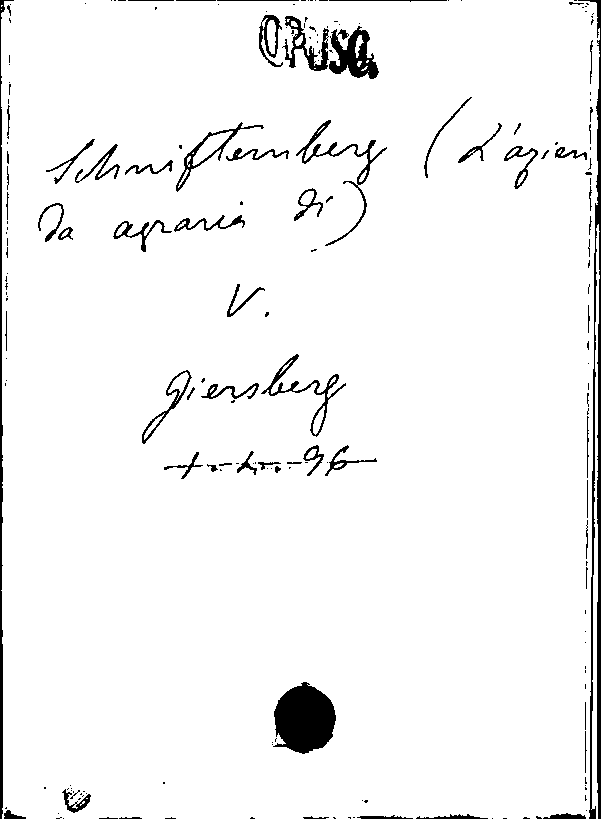 OPUSC.
Schniftemberg (L'azien
da agraria di)
V.
Giersberg
1. L. 96